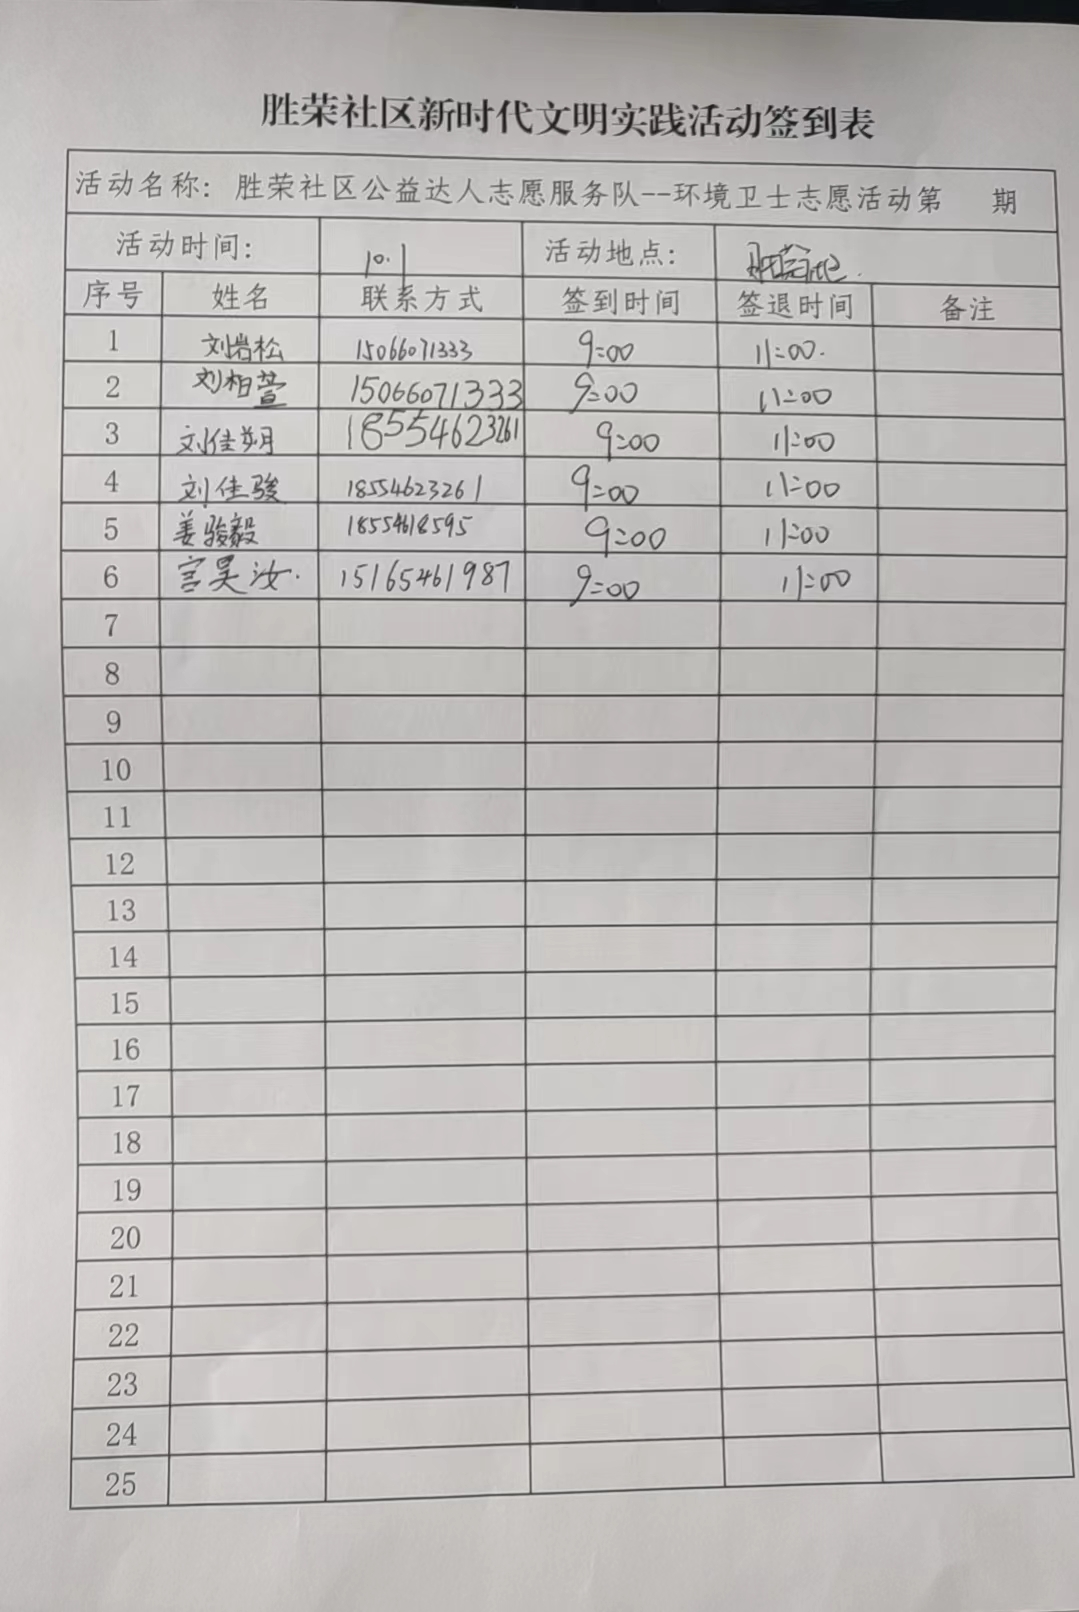 胜荣社区新时代文明实践活动签到表
活动名称：胜荣社区公益达人志愿服务队--环境卫士志愿活动第 期
活动时间： 10.1 活动地点： 胜荣社区.
序号 姓名 联系方式 签到时间 签退时间 备注
1 刘岩松 15066071333 9:00 11:00.
2 刘柏萱 15066071333 9:00 11:00
3 刘佳玥 18554623261 9:00 11:00
4 刘佳骏 18554623261 9:00 11:00
5 姜骏毅 18554618595 9:00 11:00
6 宫昊汝. 15165461987 9:00 11:00
7
8
9
10
11
12
13
14
15
16
17
18
19
20
21
22
23
24
25